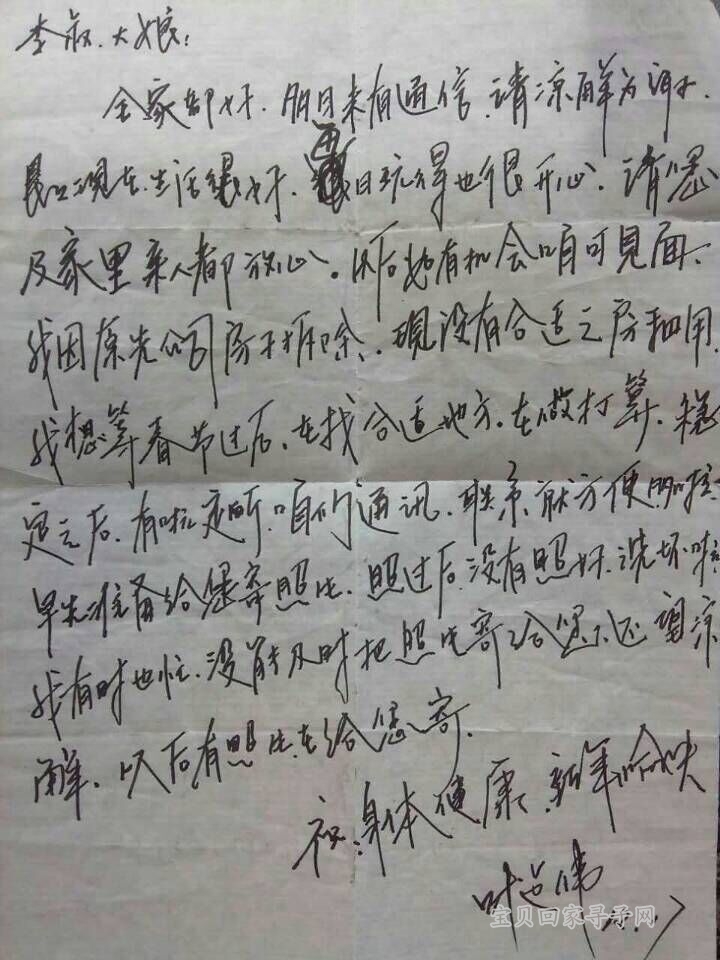 李叔.大娘:
全家都好.多日未有通信.请凉解为谅.
现在.生活很好.每日玩得也很开心.请您
及家里亲人都放心.以后也有机会咱可見面.
我因原先公司房子拆除.現没有合适之房租用
我想等春节过后.在找合适地方.在做打算.稳
定之后.有啦定所.咱们通讯.联系就方便多啦
早先准备给您寄照片.照过后.没有照好.洗坏啦
我有时也忙.没能及时把照片寄给您.还望凉
解.以后有照片在给您寄.
祝:身体健康.新年愉快
叶
宝贝回家寻子网